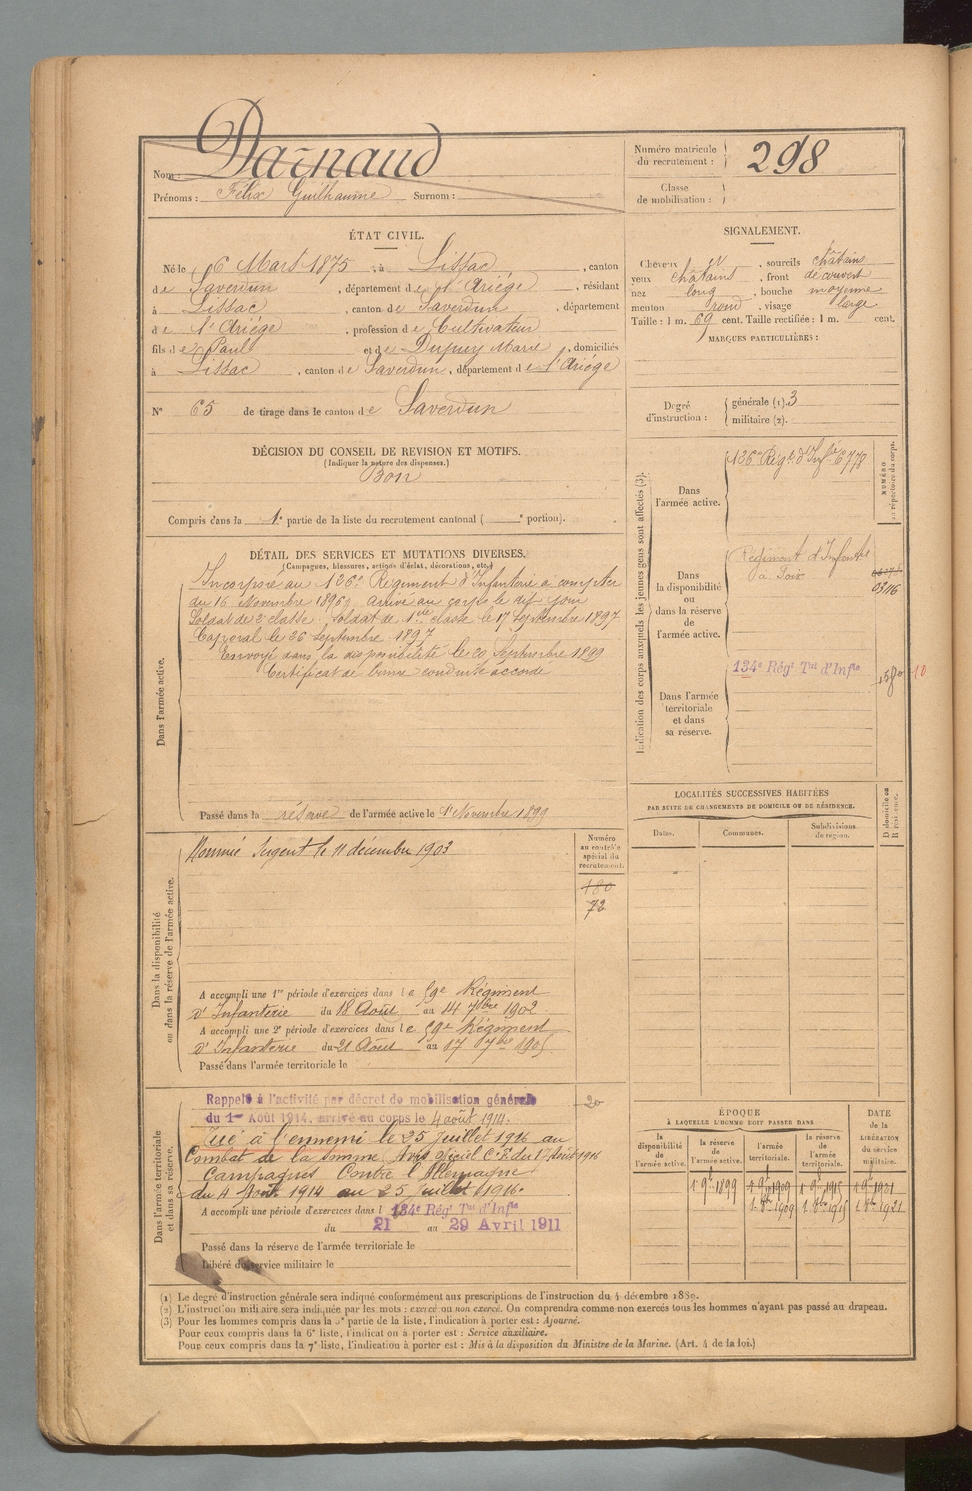 Nom : Darnaud
Prénoms : Félix Guilhaume Surnom :
Numéro matricule du recrutement : 298
Classe de mobilisation :
ÉTAT CIVIL.
Né le 6 Mars 1875, à Lissac, canton
de Saverdun, département de l'Ariége, résidant
à Lissac, canton de Saverdun, département
de l'Ariége, profession de Cultivateur
fils de Paul et de Dupuy Marie, domiciliés
à Lissac, canton de Saverdun, département de l'Ariége
N° 65 de tirage dans le canton de Saverdun
SIGNALEMENT.
Cheveux et, sourcils châtains
yeux châtains, front découvert
nez long, bouche moyenne
menton rond, visage large
Taille : 1 m. 69 cent. Taille rectifiée : 1 m. cent.
MARQUES PARTICULIÈRES :
Degré d'instruction : générale (1). 3
militaire (2).
DÉCISION DU CONSEIL DE REVISION ET MOTIFS.
(Indiquer la nature des dispenses.)
Bon
Compris dans la 1e partie de la liste du recrutement cantonal ( e portion).
Indication des corps auxquels les jeunes gens sont affectés (3).
NUMÉRO au répertoire du corps.
Dans l'armée active.
126e Régt d'Infie 6778
Dans la disponibilité ou dans la réserve de l'armée active.
Régiment d'Infanterie
à Foix
03116
Dans l'armée territoriale et dans sa réserve.
134e Régt Tal d'Infie
1580
10
DÉTAIL DES SERVICES ET MUTATIONS DIVERSES.
(Campagnes, blessures, actions d'éclat, décorations, etc.)
Dans l'armée active.
Incorporé au 126e Régiment d'Infanterie à compter
du 16 Novembre 1896, arrivé au corps le dit jour
Soldat de 2e classe. Soldat de 1ère classe le 17 Septembre 1897
Caporal le 26 Septembre 1897
Envoyé dans la disponibilité le 20 Septembre 1899
Certificat de bonne conduite accordé
Passé dans la réserve de l'armée active le 1er Novembre 1899
LOCALITÉS SUCCESSIVES HABITÉES
PAR SUITE DE CHANGEMENTS DE DOMICILE OU DE RÉSIDENCE.
Dates. Communes. Subdivisions de région. D domicile ou R résidence.
Dans la disponibilité ou dans la réserve de l'armée active.
Nommé Sergent le 11 décembre 1903
Numéro au contrôle spécial du recrutement.
180
72
A accompli une 1re période d'exercices dans le 59e Régiment
d'Infanterie du 18 Août au 14 7bre 1902
A accompli une 2e période d'exercices dans le 59e Régiment
d'Infanterie du 21 Août au 17 7bre 1905
Passé dans l'armée territoriale le
Dans l'armée territoriale et dans sa réserve.
Rappelé à l'activité par décret de mobilisation générale
du 1er Août 1914, arrivé au corps le 4 août 1914.
20
Tué à l'ennemi le 25 juillet 1916 au
Combat de la Somme. Avis officiel C.P. du 17 Août 1916
Campagnes Contre l'Allemagne
du 4 Août 1914 au 25 Juillet 1916.
A accompli une période d'exercices dans l 134e Régt Tal d'Infie
du 21 au 29 Avril 1911
Passé dans la réserve de l'armée territoriale le
Libéré du service militaire le
ÉPOQUE
À LAQUELLE L'HOMME DOIT PASSER DANS
DATE de la LIBÉRATION du service militaire.
la disponibilité de l'armée active. la réserve de l'armée active. l'armée territoriale. la réserve de l'armée territoriale.
1 9bre 1899 1 9bre 1909 1 9bre 1915 1 9bre 1921
1 8bre 1909 1 8bre 1915 1 8bre 1921
(1) Le degré d'instruction générale sera indiqué conformément aux prescriptions de l'instruction du 4 décembre 1889.
(2) L'instruction militaire sera indiquée par les mots : exercé ou non exercé. On comprendra comme non exercés tous les hommes n'ayant pas passé au drapeau.
(3) Pour les hommes compris dans la 5e partie de la liste, l'indication à porter est : Ajourné.
Pour ceux compris dans la 6e liste, l'indication à porter est : Service auxiliaire.
Pour ceux compris dans la 7e liste, l'indication à porter est : Mis à la disposition du Ministre de la Marine. (Art. 4 de la loi.)